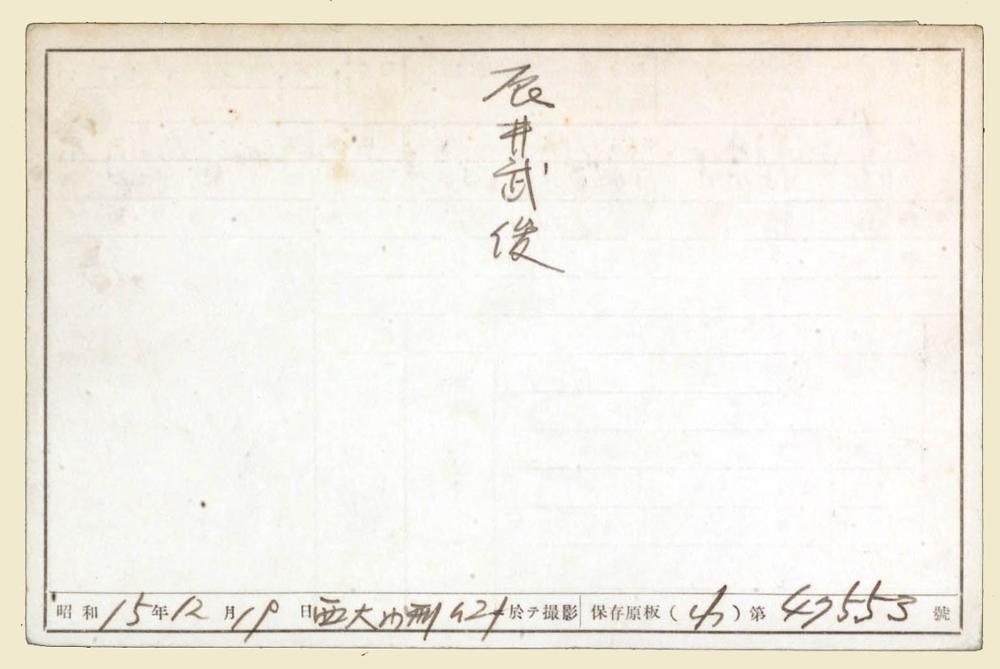 辰井武俊
昭和15年12月19日西大門刑 ニ於テ撮影 保存原板(小)第49553號